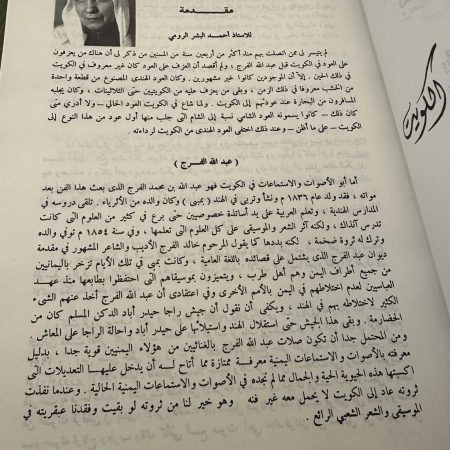 مقدمة
للاستاذ أحمد البشر الرومي
لم يتيسر لى ممن اتصلت بهم منذ أكثر من أربعين سنة من المسنين من ذكر لى أن هناك من يعزفون
على العود في الكويت قبل عبد الله الفرج ؛ ولم أقصد أن العزف على العود كان غير معروف في الكويت
في ذلك الحين . إلا أن الموجودين كانوا غير مشهورين . وكان العود الهندى المصنوع من قطعة واحدة
من الخشب معروفا في ذلك الزمن ، وبقى من يعزف عليه من الكويتيين حتى الثلاثينات ، وكان يجلبه
المسافرون من البحارة عند عودتهم إلى الكويت . ولما شاع في الكويت العود الحالي – ولا أدرى متى
كان ذلك – كانوا يسمونه العود الشامى نسبة إلى الشام التى جلب منها أول عود من هذا النوع إلى
الكويت – على ما أظن – وعند ذلك اختفى العود الهندى من الكويت لرداءته .
( عبد الله الفرج )
أما أبو الأصوات والاستماعات في الكويت فهو عبد الله بن محمد الفرج الذى بعث هذا الفن بعد
مواته ، فقد ولد عام ١٨٣٦ م ونشأ وتربى في الهند ( بمبى ) وكان والده من الأثرياء . تلقى دروسه في
المدارس الهندية ، وتعلم العربية على يد أساتذة خصوصيين حتى برع في كثير من العلوم التى كانت
تدرس آنذاك ، ولكنه آثر الشعر والموسيقى على كل العلوم التى تعلمها ، وفى سنة ١٨٥٤ م توفى والده
وترك له ثروة ضخمة ، لكنه بددها كما يقول المرحوم خالد الفرج الأديب والشاعر المشهور في مقدمة
ديوان عبد الله الفرج الذى يشتمل على قصائده باللغة العامية ، وكانت بمبى في تلك الأيام تزخر باليمانيين
من جميع أطراف اليمن وهم أهل طرب ، ويتميزون بموسيقاهم التى احتفظوا بطابعها منذ عهد
العباسيين لعدم اختلاطهم في اليمن بالأمم الأخرى وفى اعتقادى أن عبد الله الفرج أخذ عنهم الشىء
الكثير لاختلاطه بهم في الهند ، ويكفى أن نقول أن جيش راجا حيدر أباد الدكن المسلم كان من
الحضارمة . وبقى هذا الجيش حتى استقلال الهند واستيلائها على حيدر أباد واحالة الراجا على المعاش .
ومن المحتمل جدا أن تكون صلات عبد الله الفرج بالغنائيين من هؤلاء اليمنيين قوية جدا ، بدليل
معرفته بالأصوات والاستماعات اليمنية معرفة ممتازة مما أتاح له أن يدخل عليها التعديلات التى
اكسبتها هذه الحيوية الحية والجمال مما لم نجده في الأصوات والاستماعات اليمنية الحالية . وعندما نفذت
ثروته عاد إلى الكويت لا يحمل معه غير فنه وهو خير لنا من ثروته لو بقيت وفقدنا عبقريته في
الموسيقى والشعر الشعبي الرائع .
الكويت